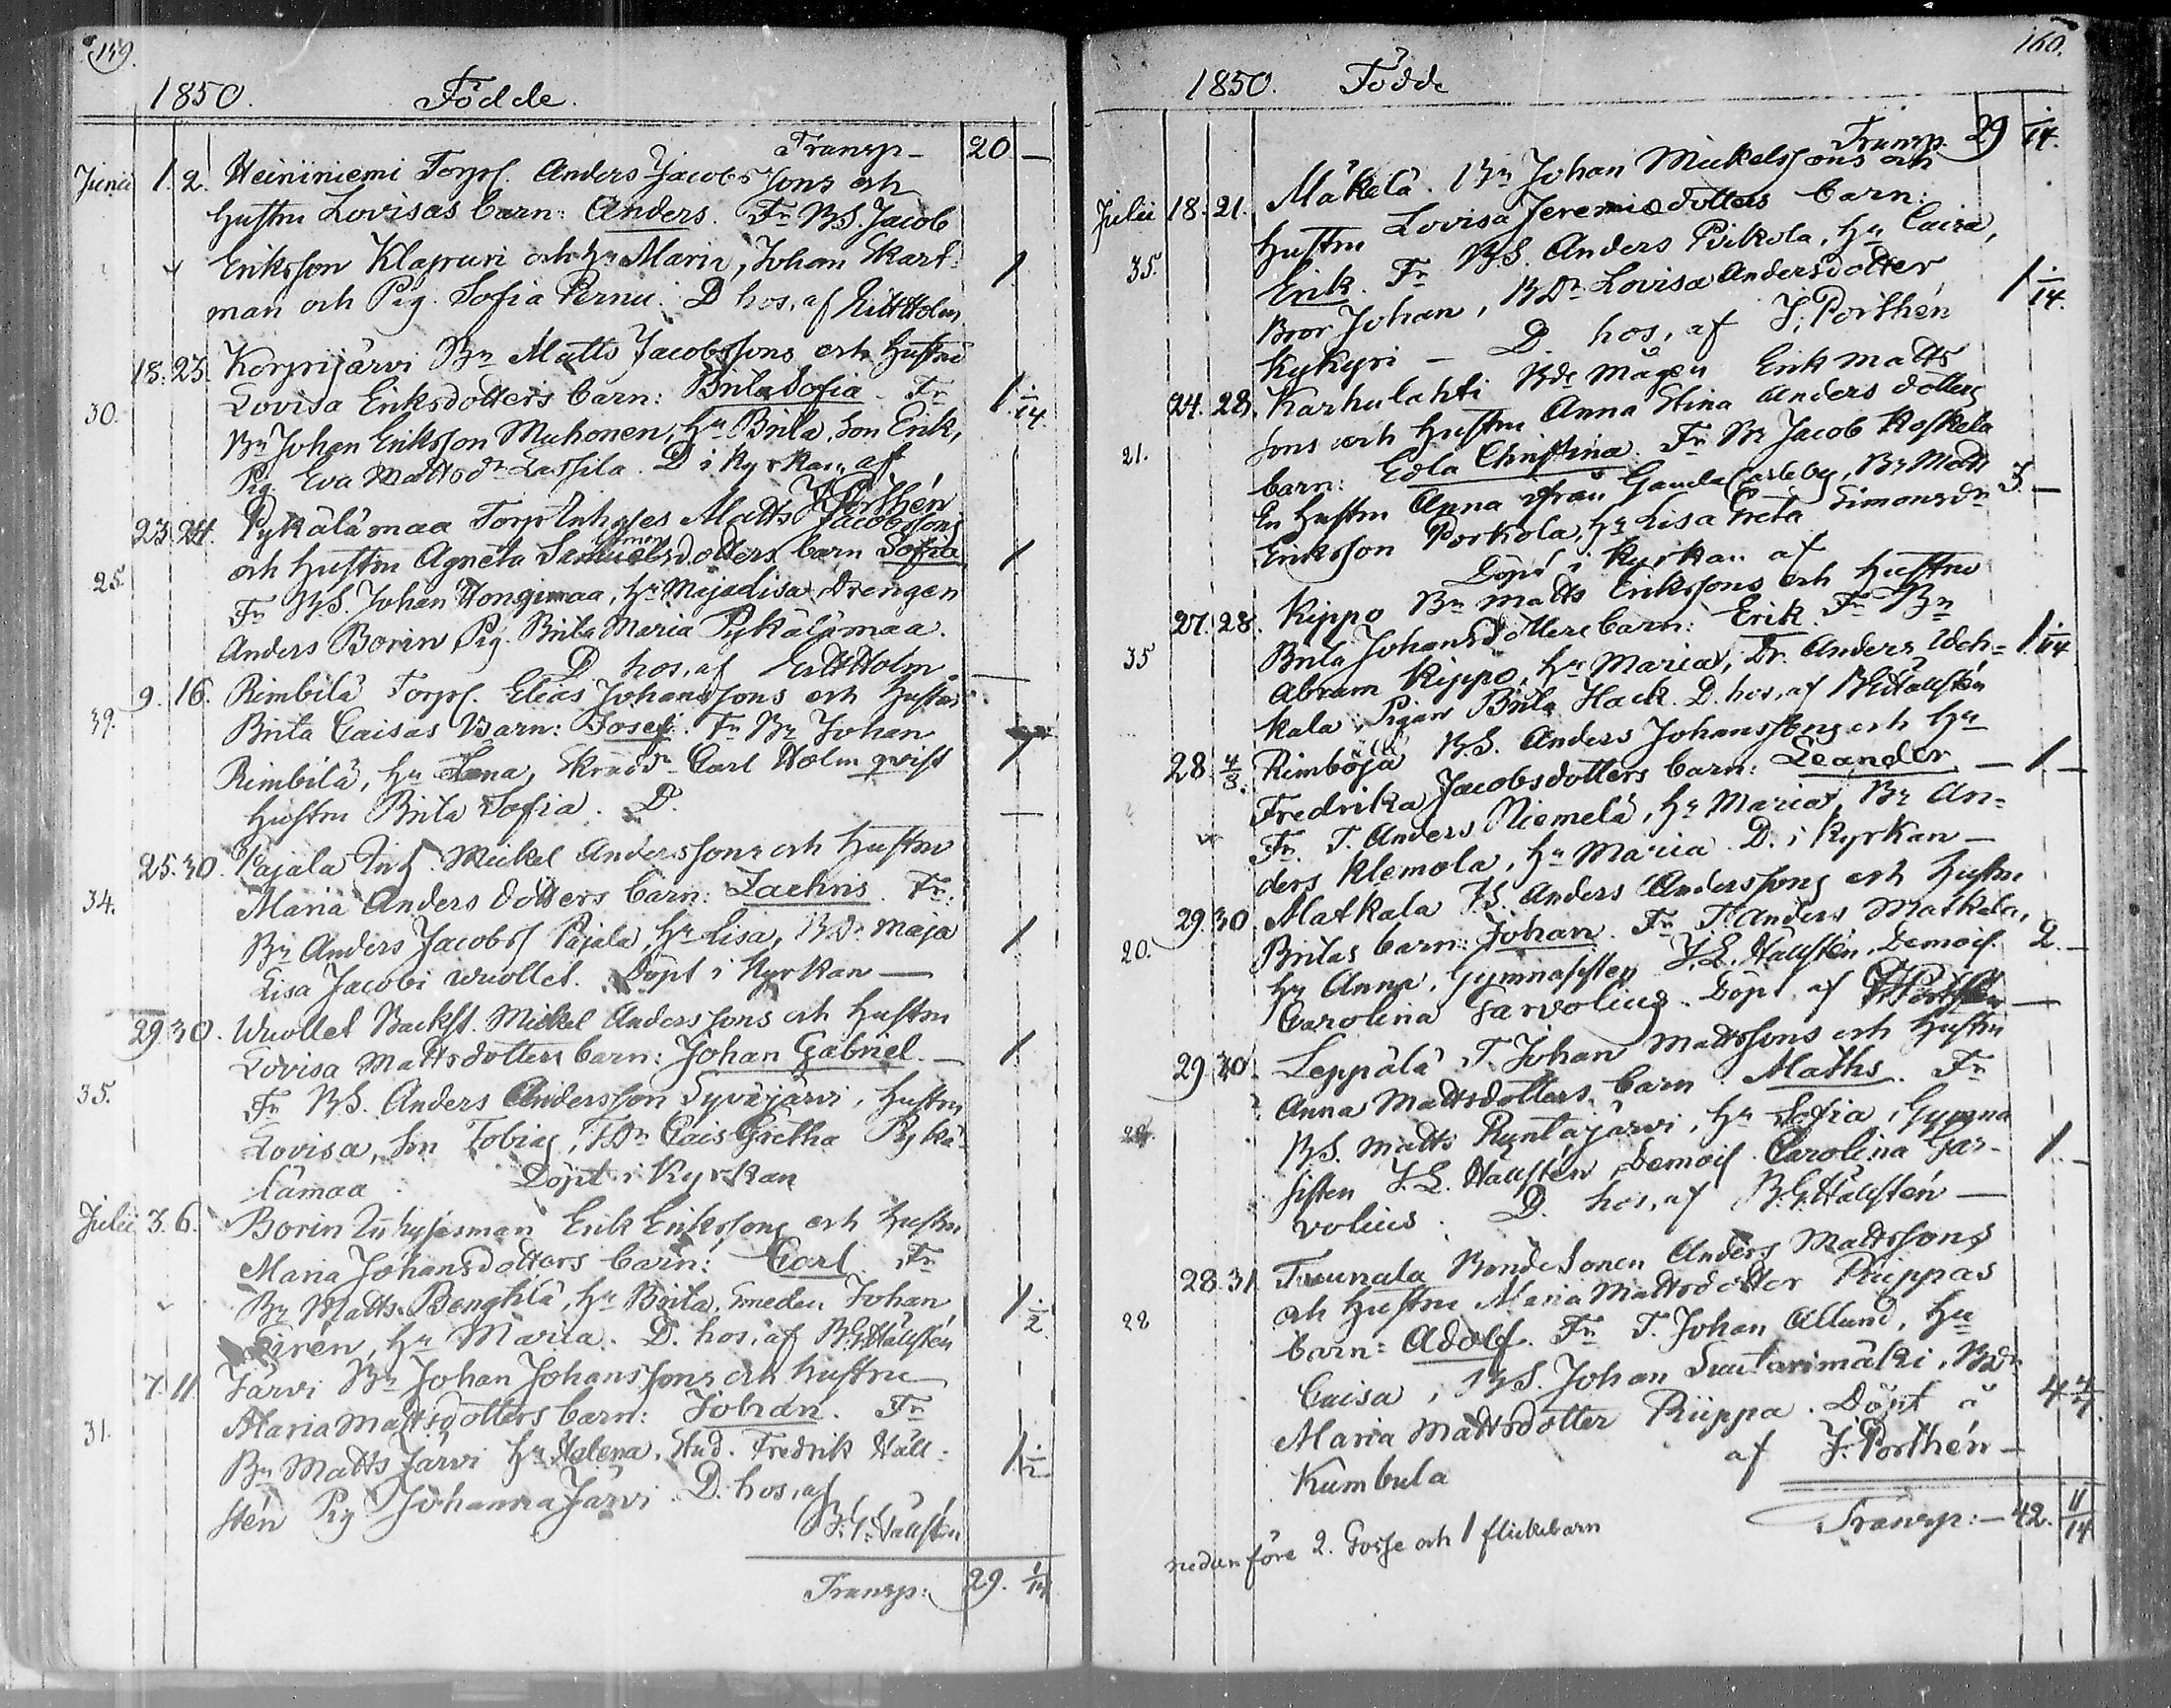 159.
1850. Födde.
Transp 20 —
Junii 1. 2. Heininiemi Torps. Anders Jacobssons och
hustru Lovisas barn: Anders. Fr BS. Jacob
Eriksson Klapuri och hu Maria, Johan Skart- 1.
man och Pig. Sofia Pernu. D hos, af Holm
18. 23. Korpijärvi Bn Matts Jacobssons och hustru
30. Lovisa Eriksdotters barn: Brita Sofia. Fr 1 1/14
Bn Johan Eriksson Muhonen, hu Brita, Son Erik,
Pig. Eva Mattsdr Lassila. D i Kyrkan, af
J. Porthén
23. 24. Pykälämaa Torp Inhyses Matts Jacobssons
och hustru Agneta Samuelsdotters barn Sofia 1
25. Fr BS. Johan Hongimaa, hu Maja Lisa, Drengen
Anders Borin, Pig. Brita Maria Pykälämaa.
D hos, af Holm.
9. 16. Rimbilä Torps. Elias Johanssons och hustru
39. Brita Caisas Barn: Josef. Fr Bn Johan
Rimbilä, hu Lena, Skradd. Carl Holmqvist 1
hustru Brita Sofia. D. —
25. 30. Pajala Inh. Mickel Anderssons och hustru
34. Maria Andersdotters barn: Zachris. Fr:
Bn Anders Jacobss Pajala, hu Lisa, BDr Maja 1.
Lisa Jacobi Wuollet. Döpt i Kyrkan —
29. 30. Wuollet Backst. Mickel Anderssons och hustru
Lovisa Mattsdotters barn: Johan Gabriel. — 1
35. Fr BS. Anders Andersson Syväjärvi, hustru
Lovisa, Son Tobias, TDr Cais Gretha Pykä-
lämaa. Döpt i Kyrkan
Julii 3. 6. Borin Inhysesman Erik Erikssons och hustru
Maria Johansdotters barn: Carl. Fr
Bn Matts Benghlä, hu Brita, Smeden Johan 1 1/2
Sirén, hu Maria. D. hos, af B.G. Hällstén
7. 11. Järvi Bn Johan Johanssons och hustru
31. Maria Mattsdotters barn: Johan. Fr
Bn Matts Järvi hu Helena, Stud. Fredrik Häll- 1 1/2
stén Pig Johanna Järvi. D. hos, af
B.G. Hällstén
Transp: 29. 1/14
160.
1850. Födde
Transp. 29 1/14.
Julii 18. 21. Mäkelä. Bn Johan Mickelssons och
hustru Lovisa Jeremiædotters barn:
35. Erik. Fr BS. Anders Pirkola, hu Caisa,
Bror Johan, BDr Lovisa Andersdotter 1 1/14.
Kykyri — D. hos, af J. Porthén
24. 28. Karhulahti Bde Mågen Erik Matts
sons och hustru Anna Stina Andersdotters
21. barn: Edla Christina. Fr Bn Jacob Koskela
En hustru Anna ifrån Gamla Carleby, Bn Matts 3. —
Eriksson Porkola, hu Lisa Greta Simonsdr
Döpt i Kyrkan af
27. 28. Kippo Bn Matts Erikssons och hustru
35 Brita Johansdotters barn: Erik. Fr Bn
Abram Kippo, hu Maria, Dr. Anders Weh- 1 1/14
kala, Pigan Brita Hack. D. hos, af B.G. Hällstén
28. 4/8. Rimböjä BS. Anders Johanssons och hu
Fredrika Jacobsdotters barn: Leander — 1 —
Fr. T. Anders Niemelä, hu Maria, Bn An-
ders Klemola, hu Maria. D. i Kyrkan —
29. 30. Matkala BS. Anders Anderssons och hustru
20. Britas barn: Johan. Fr T. Anders Matkala, 2. —
hu Anna, Gymnasisten J.L. Hällstén, Demois.
Carolina Garvolius. Döpt af J. Porthén —
29. 30. Leppälä T. Johan Mattssons och hustru
Anna Mattsdotters barn. Maths. Fr
BS. Matts Ryntäjärvi, hu Sofia, Gymna
sisten J.L. Hällstén Demois. Carolina Gar- 1. —
volius. D. hos, af B.G. Hällstén —
28. 31. Tuunala Bondesonen Anders Mattssons
och hustru Maria Mattsdotter Riippas
28 barn: Adolf. Fr T. Johan Allund, hu
Caisa, BS. Johan Suutarimäki, BDr
Maria Mattsdotter Riippa. Döpt å 4
Kumbula af J. Porthén —
Transp: — 42. 11/14
nedanföre 2. Gosse och 1 flickebarn